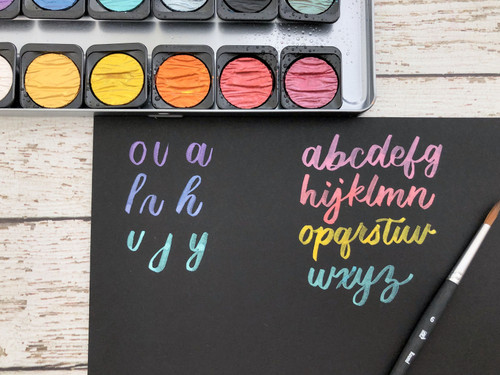 o u a
l n h
u j y
abcdefg
hijklmn
opqrstuv
wxyz